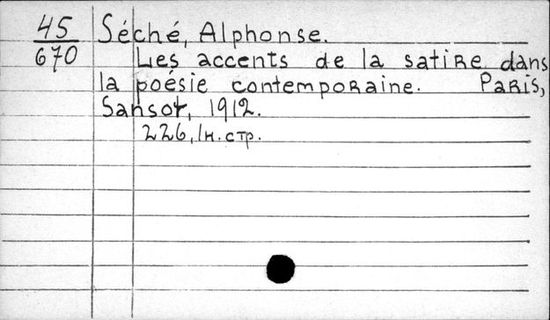 45 Séché, Alphonse.
670 Les accents de la satire dans
la poésie contemporaine. Paris,
Sansot, 1912.
226, 1 н. стр.